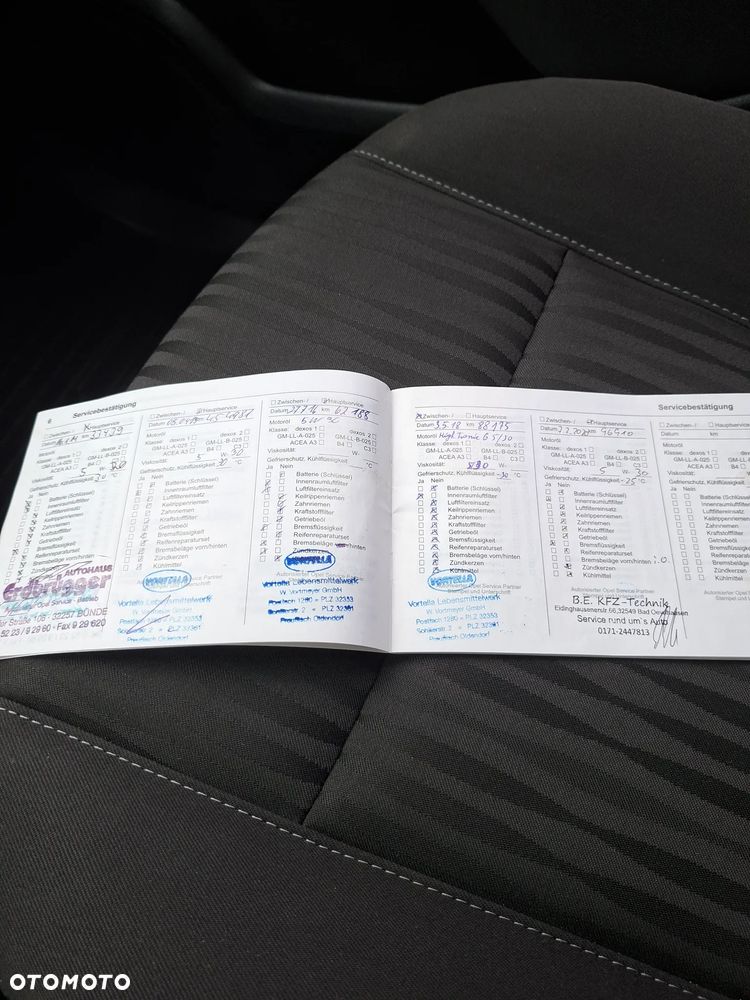 6
Servicebestätigung
Zwischen- / Hauptservice
Datum km 33439
Motoröl
Klasse: dexos 1 dexos 2
GM-LL-A-025 GM-LL-B-025
ACEA A3 B4 C3
Viskosität: 5 W-
Gefrierschutz, Kühlflüssigkeit °C
Ja Nein
Batterie (Schlüssel)
Innenraumluftfilter
Luftfiltereinsatz
Keilrippenriemen
Zahnriemen
Kraftstofffilter
Getriebeöl
Bremsflüssigkeit
Reifenreparaturset
Bremsbeläge vorn/hinten
AUTOHAUS
Erdbrügger
Opel Service - Betrieb
Straße 106 - 32257 BÜNDE
52 23 / 9 29 60 - Fax 9 29 620
Zwischen- / Hauptservice
Datum km
Motoröl
Klasse: dexos 1 dexos 2
GM-LL-A-025 GM-LL-B-025
ACEA A3 B4 C3
Viskosität: 5 W- 30
Gefrierschutz, Kühlflüssigkeit 30 °C
Ja Nein
Batterie (Schlüssel)
Innenraumluftfilter
Luftfiltereinsatz
Keilrippenriemen
Zahnriemen
Kraftstofffilter
Getriebeöl
Bremsflüssigkeit
Reifenreparaturset
Bremsbeläge vorn/hinten
Zündkerzen
Kühlmittel
VORTELLA
Vortella Lebensmittelwerk
W. Vortmeyer GmbH
Postfach 1280 = PLZ 32353
2 = PLZ 32361
Preußisch Oldendorf
Zwischen- / Hauptservice
Datum km 62188
Motoröl 5W
Klasse: dexos 1 dexos 2
GM-LL-A-025 GM-LL-B-025
ACEA A3 B4 C3
Viskosität: W-
Gefrierschutz, Kühlflüssigkeit °C
Ja Nein
Batterie (Schlüssel)
Innenraumluftfilter
Luftfiltereinsatz
Keilrippenriemen
Zahnriemen
Kraftstofffilter
Getriebeöl
Bremsflüssigkeit
Reifenreparaturset
Bremsbeläge vorn/hinten
Zündkerzen
VORTELLA
Autorisierter Opel Service Partner
Vortella Lebensmittelwerk
W. Vortmeyer GmbH
Postfach 1280 = PLZ 32353
2 = PLZ 32361
Preußisch Oldendorf
Servicebestätigung
Zwischen- / Hauptservice
Datum 3.5.18 km 88175
Motoröl High Tronic G 5/30
Klasse: dexos 1 dexos 2
GM-LL-A-025 GM-LL-B-025
ACEA A3 B4 C3
Viskosität: W-
Gefrierschutz, Kühlflüssigkeit -30 °C
Ja Nein
Batterie (Schlüssel)
Innenraumluftfilter
Luftfiltereinsatz
Keilrippenriemen
Zahnriemen
Kraftstofffilter
Getriebeöl
Bremsflüssigkeit
Reifenreparaturset
Bremsbeläge vorn/hinten
Zündkerzen
Kühlmittel
VORTELLA
Autorisierter Opel Service Partner
Stempel und Unterschrift
Vortella Lebensmittelwerk
W. Vortmeyer GmbH
Postfach 1280 = PLZ 32353
2 = PLZ 32361
Preußisch Oldendorf
Zwischen- / Hauptservice
Datum km 96410
Motoröl
Klasse: dexos 1 dexos 2
GM-LL-A-025 GM-LL-B-025
ACEA A3 B4 C3
Viskosität: 5 W- 30
Gefrierschutz, Kühlflüssigkeit -25 °C
Ja Nein
Batterie (Schlüssel)
Innenraumluftfilter
Luftfiltereinsatz
Keilrippenriemen
Zahnriemen
Kraftstofffilter
Getriebeöl
Bremsflüssigkeit
Reifenreparaturset
Bremsbeläge vorn/hinten i.O.
Zündkerzen
Kühlmittel
Autorisierter Opel Service Partner
Stempel und Unterschrift
B.E. KFZ-Technik
Eidinghausenerstr.66,32549 Bad Oeynhausen
Service rund um's Auto
0171-2447813
Zwischen- / Hauptservice
Datum km
Motoröl
Klasse: dexos 1
GM-LL-A-025
ACEA A3
Viskosität:
Gefrierschutz, Kühlflüssigkeit
Ja Nein
Batterie (Schlüssel)
Innenraumluftfilter
Luftfiltereinsatz
Keilrippenriemen
Zahnriemen
Kraftstofffilter
Getriebeöl
Bremsflüssigkeit
Bremsbeläge
Zündkerzen
Kühlmittel
Autorisierter Opel
Stempel und
OTOMOTO